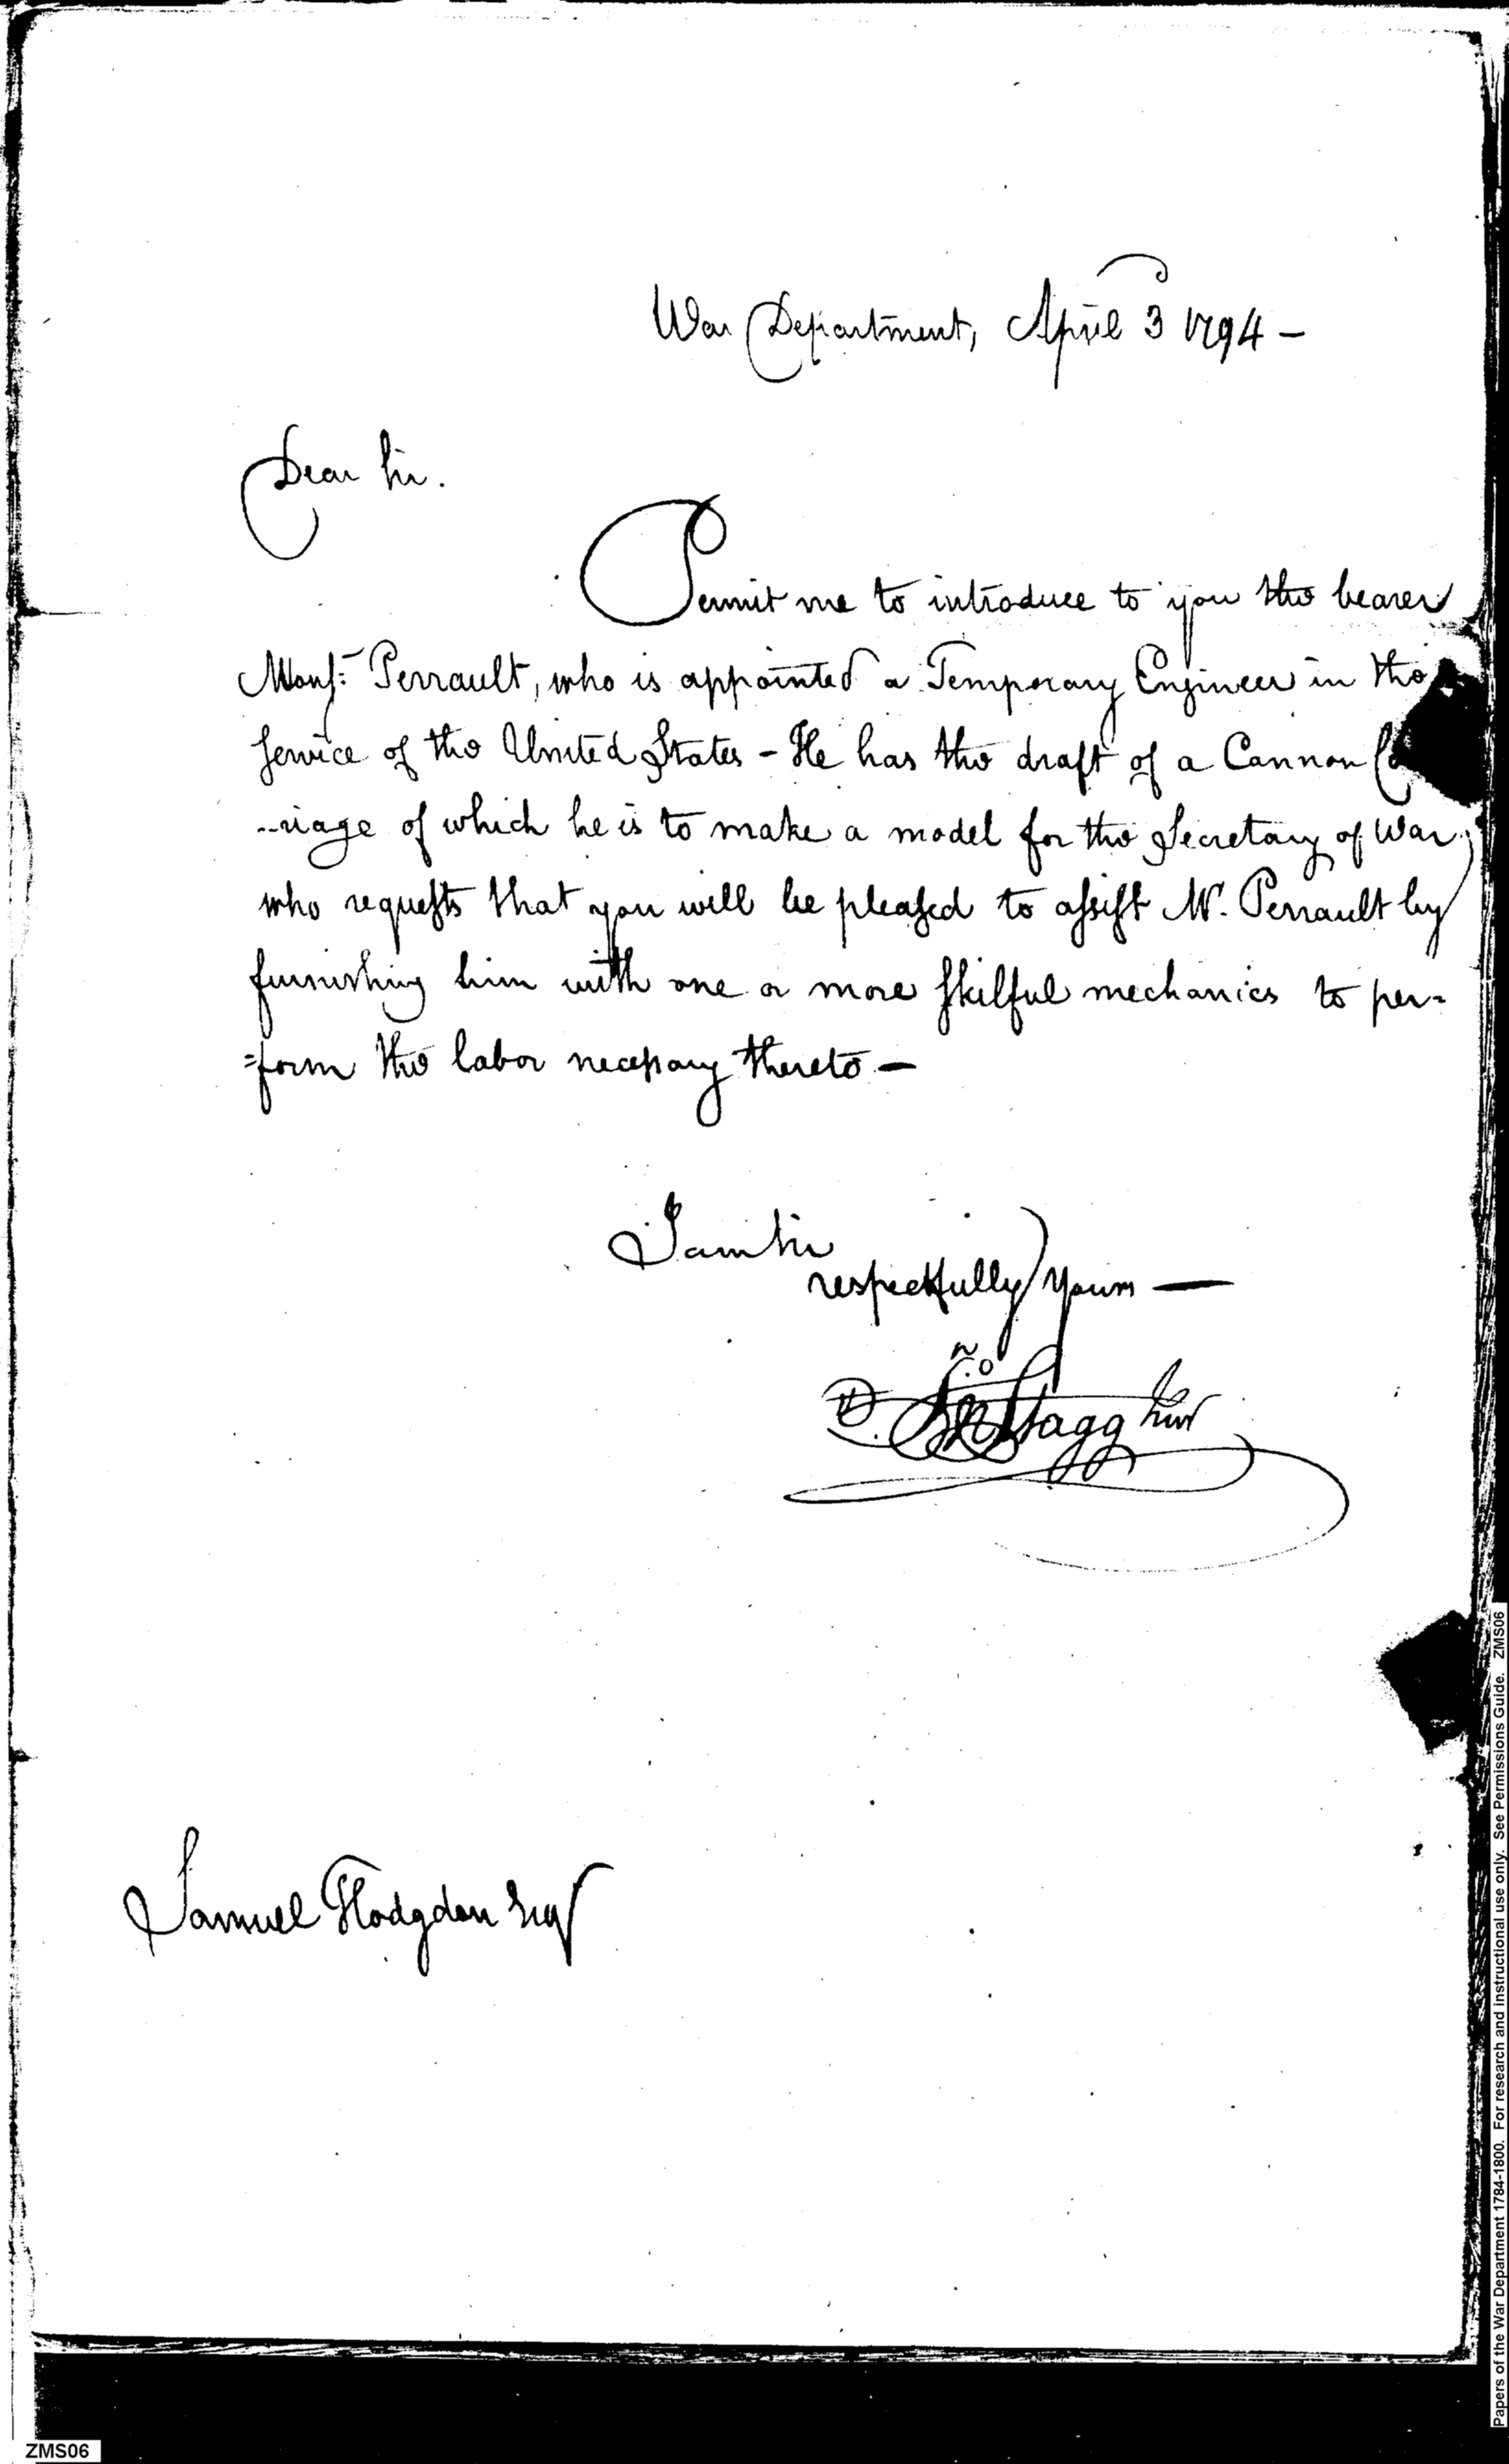 War Department, April 3 1794 –
Dear Sir.
Permit me to introduce to you the bearer
Monsr. Perrault, who is appointed a Temporary Engineer in the
Service of the United States – He has the draft of a Cannon Ca
-riage of which he is to make a model for the Secretary of War,
who requests that you will be pleased to assist Mr. Perrault by
furnishing him with one or more skilful mechanics to per=
=form the labor necessary thereto –
I am Sir
respectfully Yours —
Jno Stagg Junr
Samuel Hodgdon Esqr
Papers of the War Department 1784-1800. For research and instructional use only. See Permissions Guide. ZMS06
ZMS06